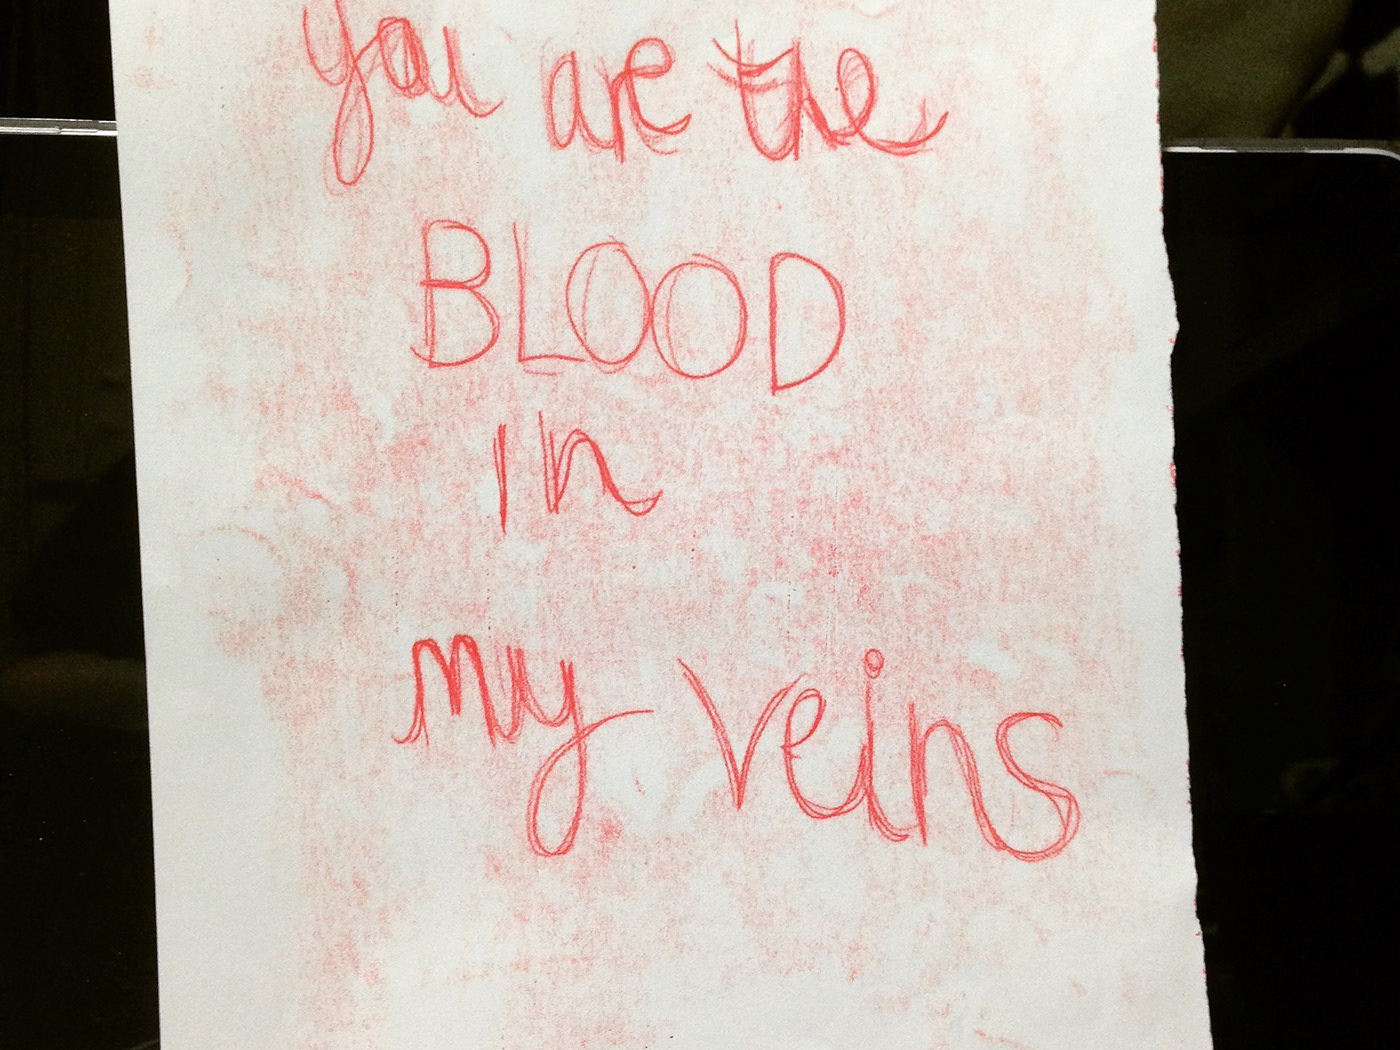 you are the
BLOOD
in
my veins